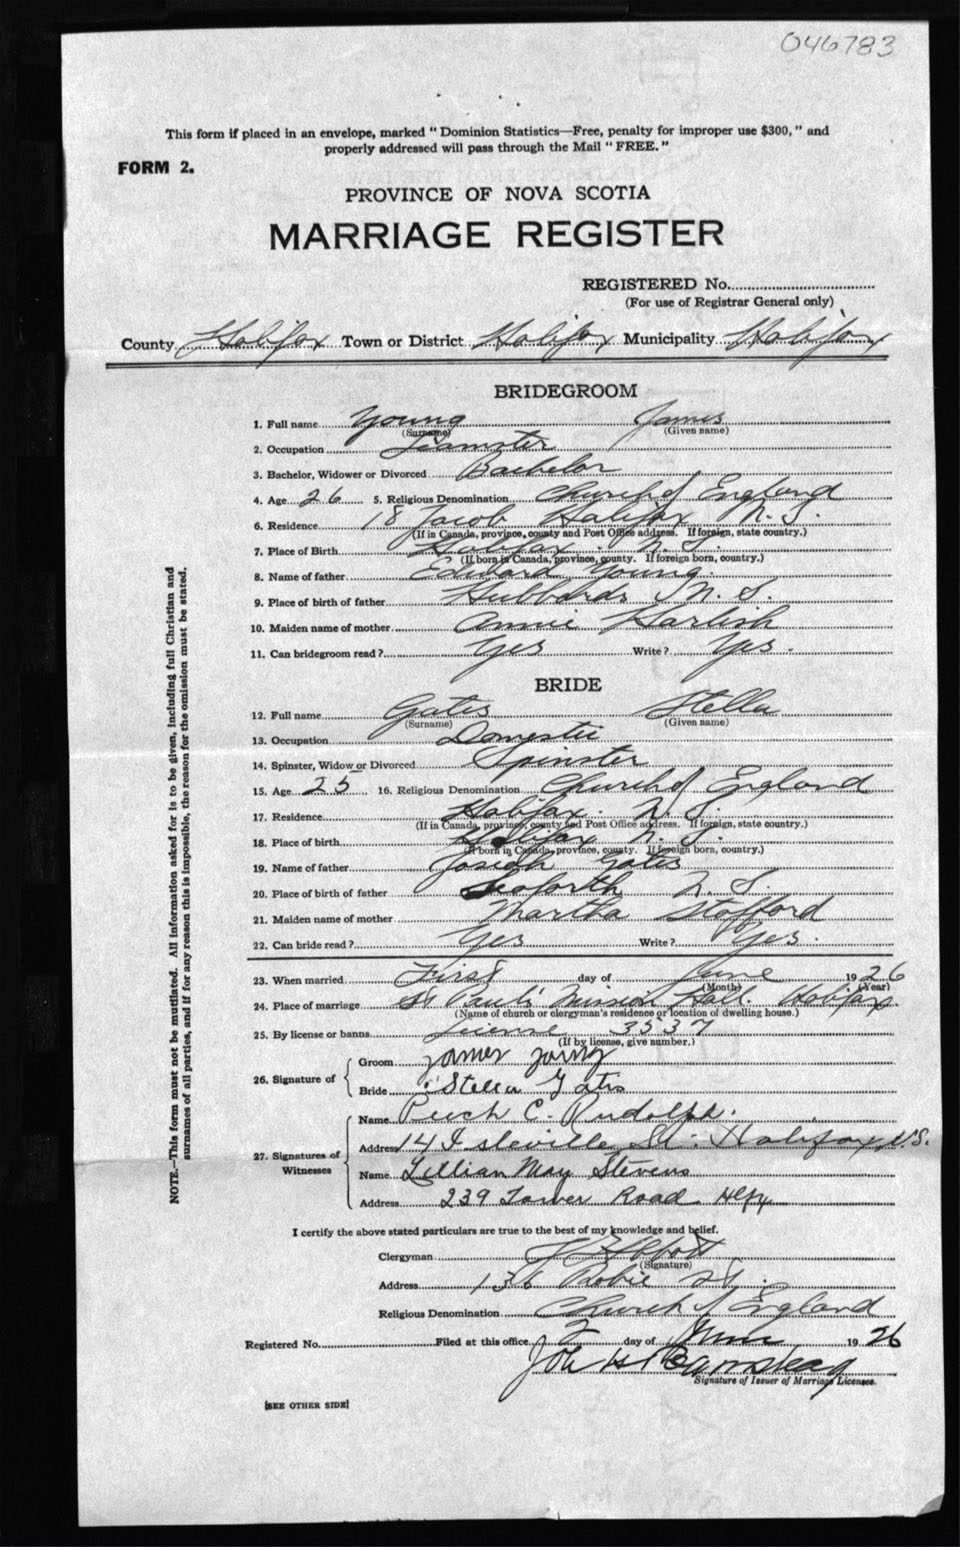 046783
This form if placed in an envelope, marked "Dominion Statistics—Free, penalty for improper use $300," and
properly addressed will pass through the Mail "FREE."
FORM 2.
PROVINCE OF NOVA SCOTIA
MARRIAGE REGISTER
REGISTERED No.
(For use of Registrar General only)
County Halifax Town or District Halifax Municipality Halifax
BRIDEGROOM
1. Full name Young James
(Surname) (Given name)
2. Occupation Teamster
3. Bachelor, Widower or Divorced Bachelor
4. Age 26 5. Religious Denomination Church of England
6. Residence 18 Jacob Halifax N.S.
(If in Canada, province, county and Post Office address. If foreign, state country.)
7. Place of Birth Halifax N.S.
(If born in Canada, province, county. If foreign born, country.)
8. Name of father Edward Young.
9. Place of birth of father Hubbards N.S.
10. Maiden name of mother Annie
11. Can bridegroom read? Yes Write? Yes.
BRIDE
12. Full name Gates Stella
(Surname) (Given name)
13. Occupation Domestic
14. Spinster, Widow or Divorced Spinster
15. Age 25 16. Religious Denomination Church of England
17. Residence Halifax N.S.
(If in Canada, province, county and Post Office address. If foreign, state country.)
18. Place of birth Halifax N.S.
(If born in Canada, province, county. If foreign born, country.)
19. Name of father Josiah Gates
20. Place of birth of father Seaforth N.S.
21. Maiden name of mother Martha Stafford
22. Can bride read? Yes Write? Yes.
23. When married First day of June 1926
(Month) (Year)
24. Place of marriage St Paul's Mission Hall. Halifax.
(Name of church or clergyman's residence or location of dwelling house.)
25. By license or banns License 3537
(If by license, give number.)
26. Signature of
Groom James Young
Bride Stella Gates
27. Signatures of Witnesses
Name C. Rudolph.
Address 14 Isleville St. Halifax N.S.
Name Lillian May Stevens
Address 239 Tower Road Hlfx
I certify the above stated particulars are true to the best of my knowledge and belief.
Clergyman
(Signature)
Address 136 Robie St.
Religious Denomination Church of England
Registered No. Filed at this office 2 day of June 1926
Signature of Issuer of Marriage Licenses.
[SEE OTHER SIDE]
NOTE.—This form must not be mutilated. All information asked for is to be given, including full Christian and
surnames of all parties, and if for any reason this is impossible, the reason for the omission must be stated.